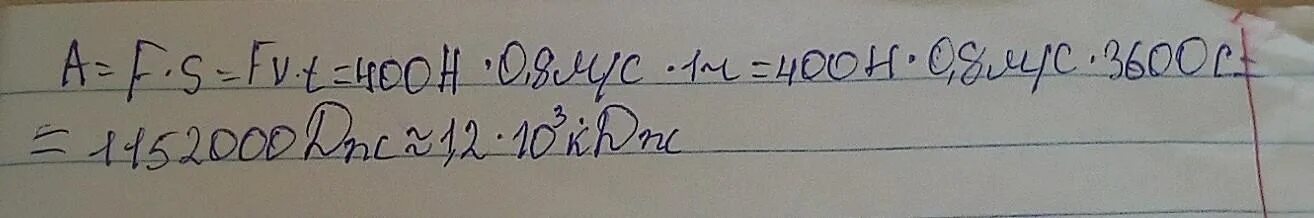 A = F · S = Fv · t = 400Н · 0,8м/с · 1ч = 400Н · 0,8м/с · 3600с =
= 1152000Дж ≈ 1,2 · 10³кДж